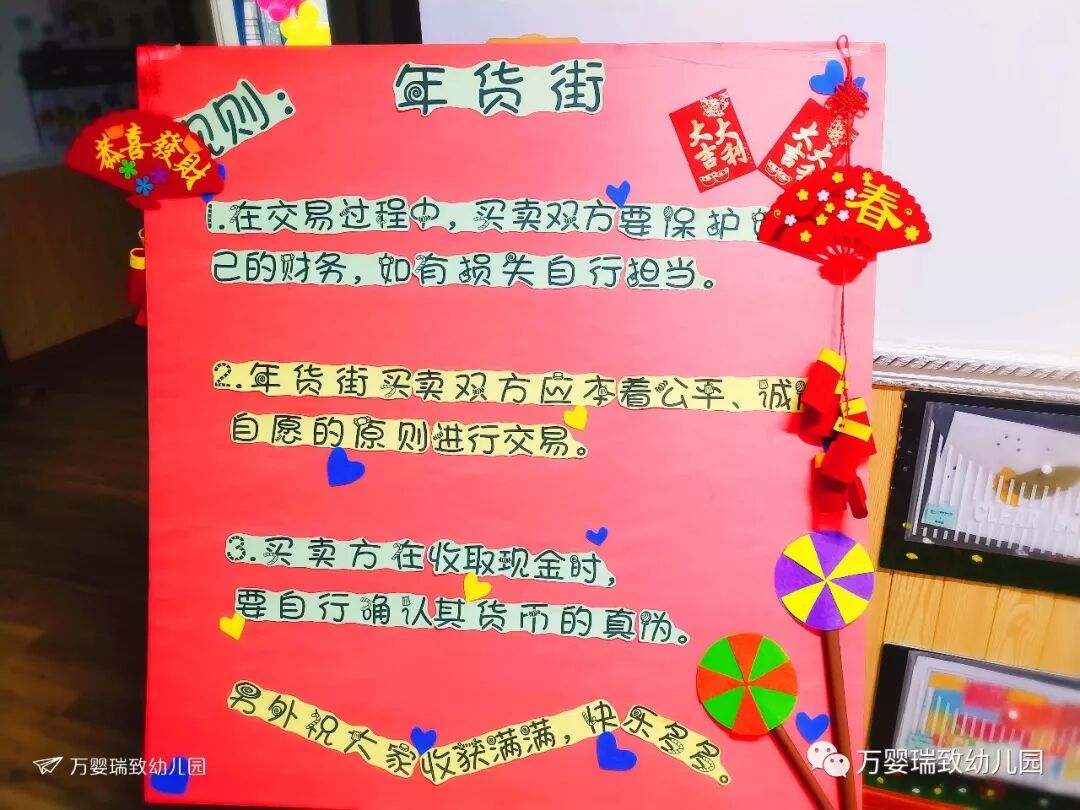 年货街
则:
恭喜發財
大吉大利
大吉大利
春
1.在交易过程中,买卖双方要保护
己的财务,如有损失自行担当。
2.年货街买卖双方应本着公平、诚
自愿的原则进行交易。
3.买卖方在收取现金时,
要自行确认其货币的真伪。
另外祝大家收获满满,快乐多多。
万婴瑞致幼儿园
万婴瑞致幼儿园